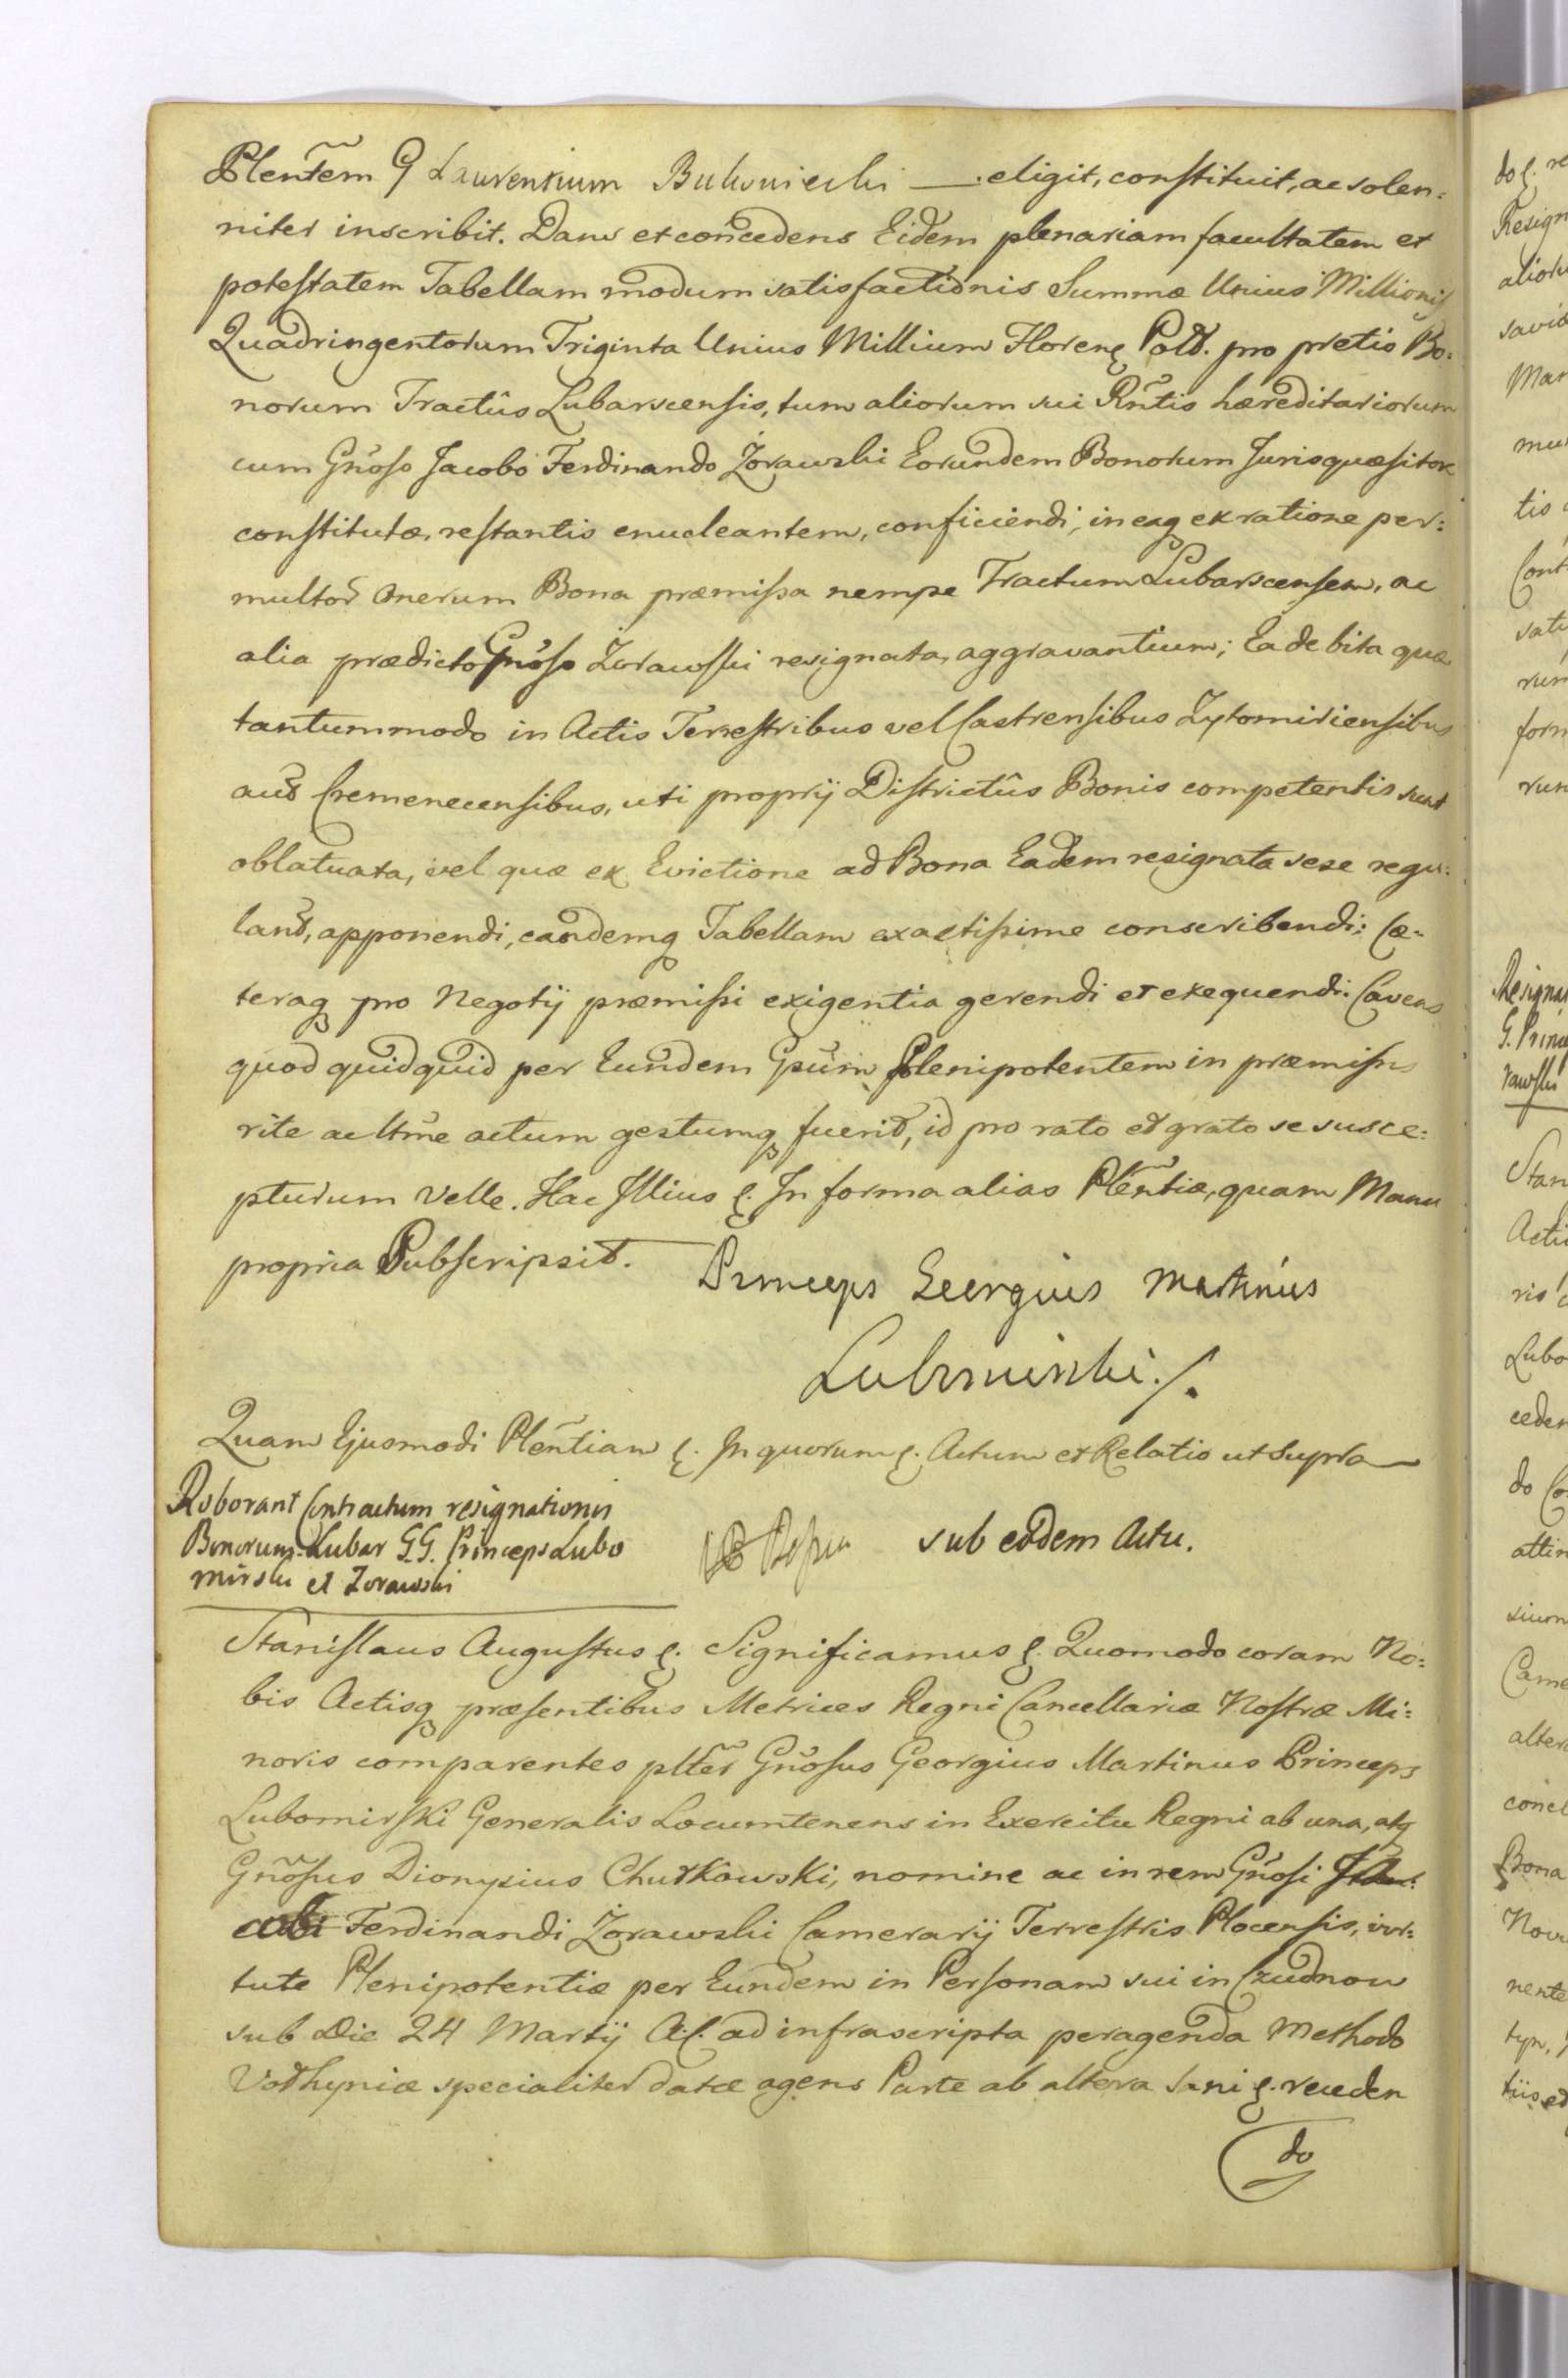 Plenтẽm G Laurentium Bukowiecki —. eligit, constituit, ac solen:
niter inscribit. Dans et concedens Eidem plenariam facultatem et
potestatem Tabellam modum satisfactionis Summæ Unius Millionis
Quadringentorum Triginta Unius Millium Floren Pold. pro pretio Bo:
norum Tractûs Lubarscensis, tum aliorum sui Rñtis hæreditariorum
cum Gñoso Jacobo Ferdinando Żorawski Eorundem Bonorum Jurisquæsitore
constitutæ, restantis enucleantem, conficiendi, in eaq ex ratione per:
multor onerum Bona præmissa nempe Tractum Lubarscensem, ac
alia prædicto Gñoso Żorawski resignata, aggravantium; Ea debita quæ
tantummodo in Actis Terrestribus vel Castrensibus Zytomiriensibus
aut Cremenecensibus, uti proprij Districtûs Bonis competentis sunt
oblatuata, vel quæ ex Evictione ad Bona Eadem resignata sese regu:
lant, apponendi, eandemq Tabellam exactissime conscribendi: Cæ-
teraq pro Negotij præmissi exigentia gerendi et exequendi. Cavens
quod quidquid per Eundem Gsum Plenipotentem in præmissis
rite ac ltme actum gestumq fuerit, id pro rato et grato se susce:
pturum velle. Hac Illius &. In forma alias Plentiæ, quam Manu
propria Subscripsit. Princeps Georgius Martinus
Lubomirski ./.
Quam Ejusmodi Plentiam &. In quorum &. Actum et Relatio ut supra
Roborant Contractum resignationis
Bonorum Lubar G.G. Princeps Lubo
mirski et Zorawski
sub eodem Actu.
Stanislaus Augustus &. Significamus &. Quomodo coram No:
bis Actisq præsentibus Metrices Regni Cancellariæ Nostræ Mi:
noris comparentes plter Gñosus Georgius Martinus Princeps
Lubomirski Generalis Locumtenens in Exercitu Regni ab una, atq
Gñosus Dionysius Chutkowski, nomine ac in rem Gñosi Ja:
cobi Ferdinandi Żorawski Camerarij Terrestris Plocensis, vir:
tute Plenipotentiæ per Eundem in Personam sui in Czudnow
sub Die 24 Martij A.C. ad infrascripta peragenda Methodo
Vodhyniæ specialiter datæ agens Parte ab altera Sani &. receden
do